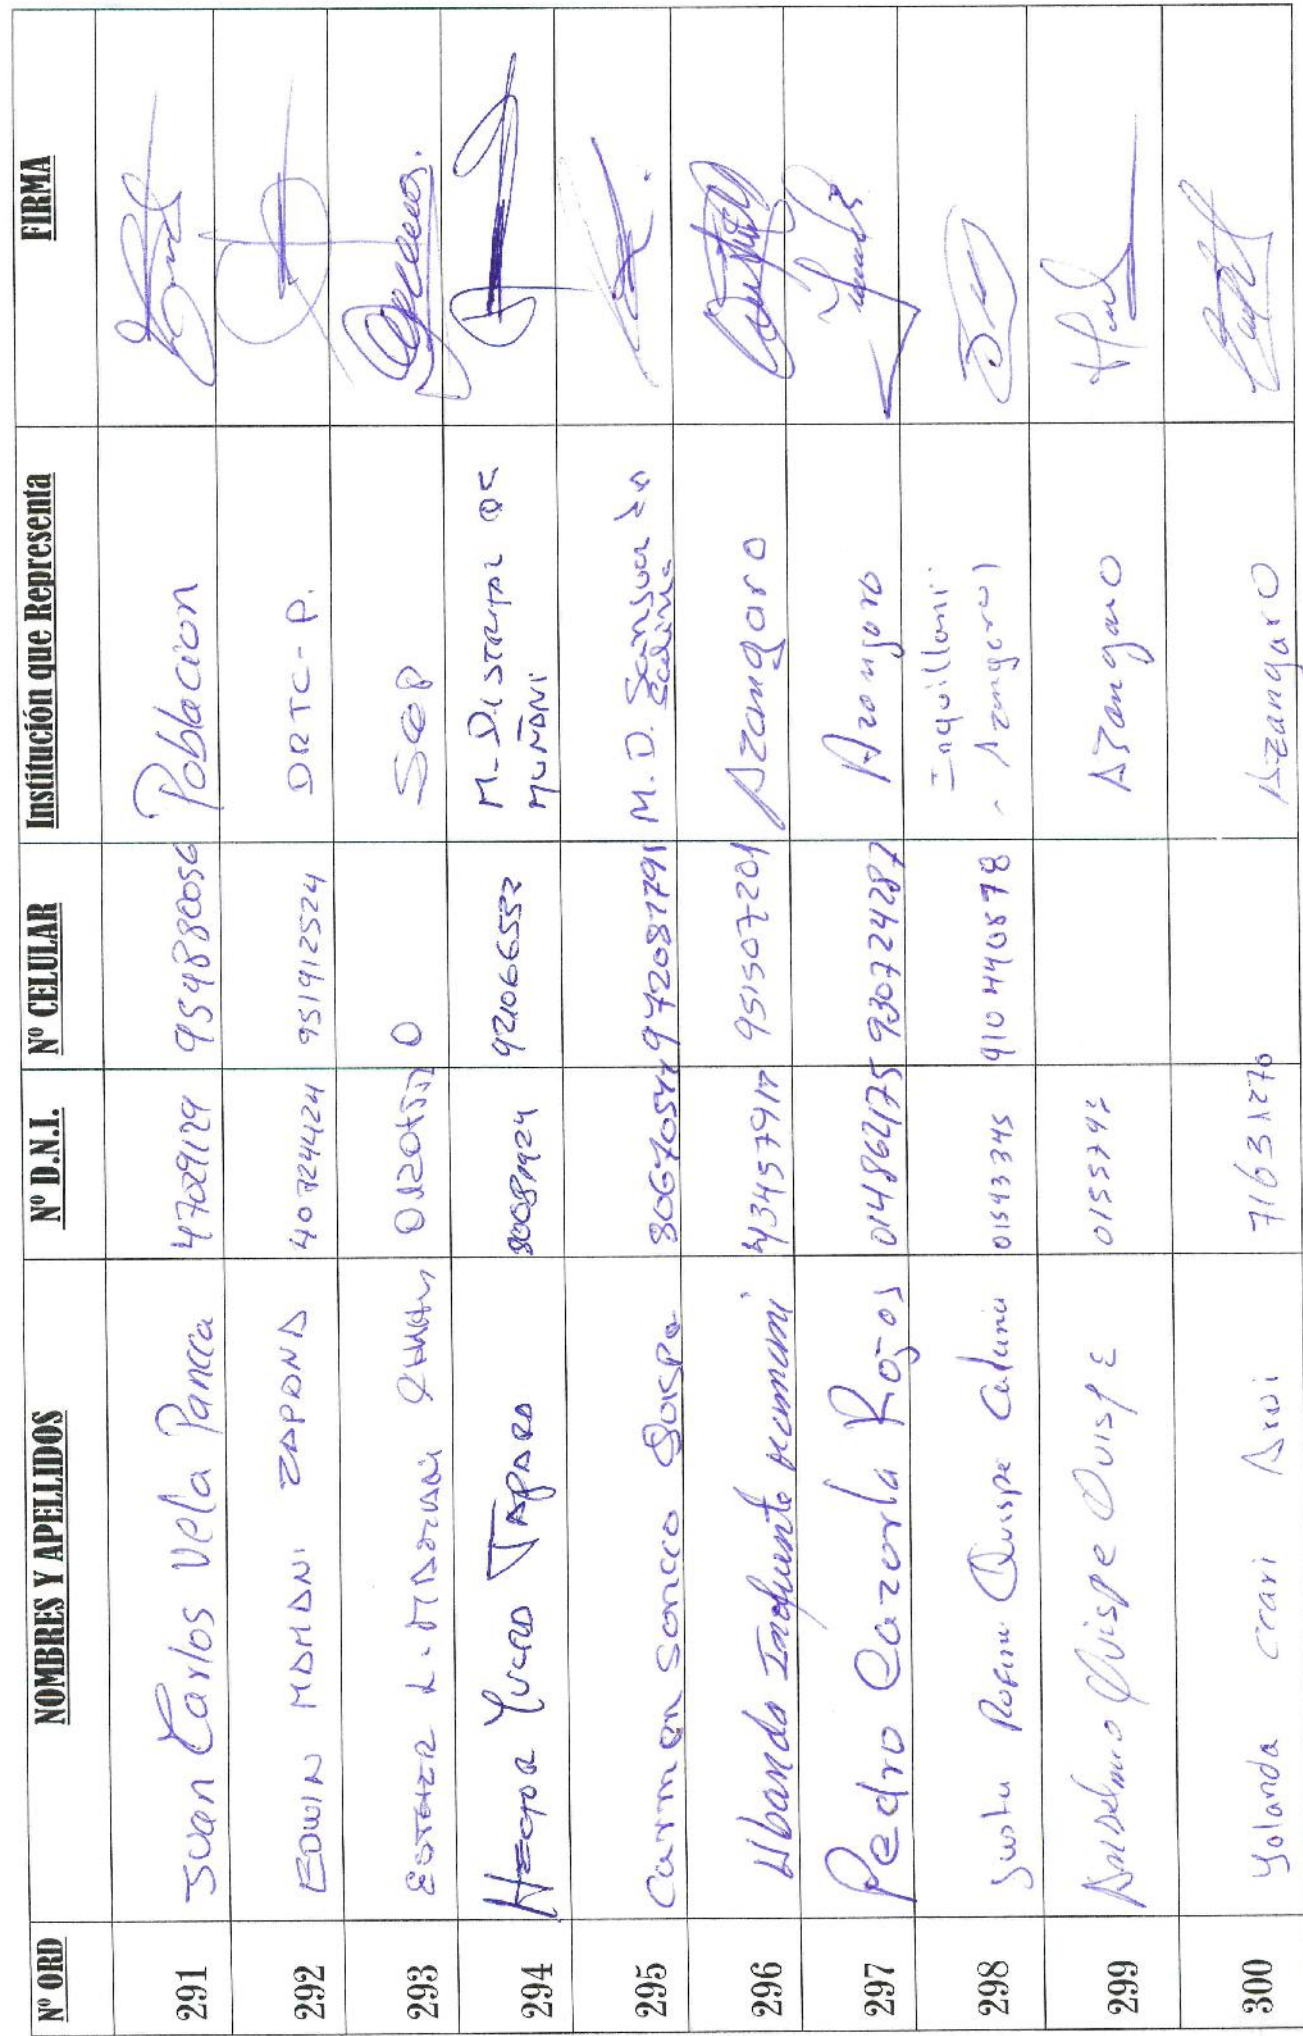 Nº ORD NOMBRES Y APELLIDOS Nº D.N.I. Nº CELULAR Institución que Representa FIRMA
291 Juan Carlos Vela Pancca 47029129 954880056 Poblacion
292 EDWIN MAMANI ZAPANA 40724424 951912524 DRTC-P.
293 ESTHER L. 0
294 HECTOR YUCRA TAPARA 80081924 921066552 M-DISTRITAL DE
MUÑANI
295 Carmen Soncco Quispe 80670544 972087791 M.D.
296 Mamani 43457917 951507201 Azangaro
297 Pedro Cazorla Rojas 01486175 930724287 Azangaro
298 Justo Quispe 01543345 910440878 Inquillani
- Azangaro)
299 Anselmo Quispe Quispe 0155742 Azangaro
300 Yolanda Ccari 71631270 Azangaro